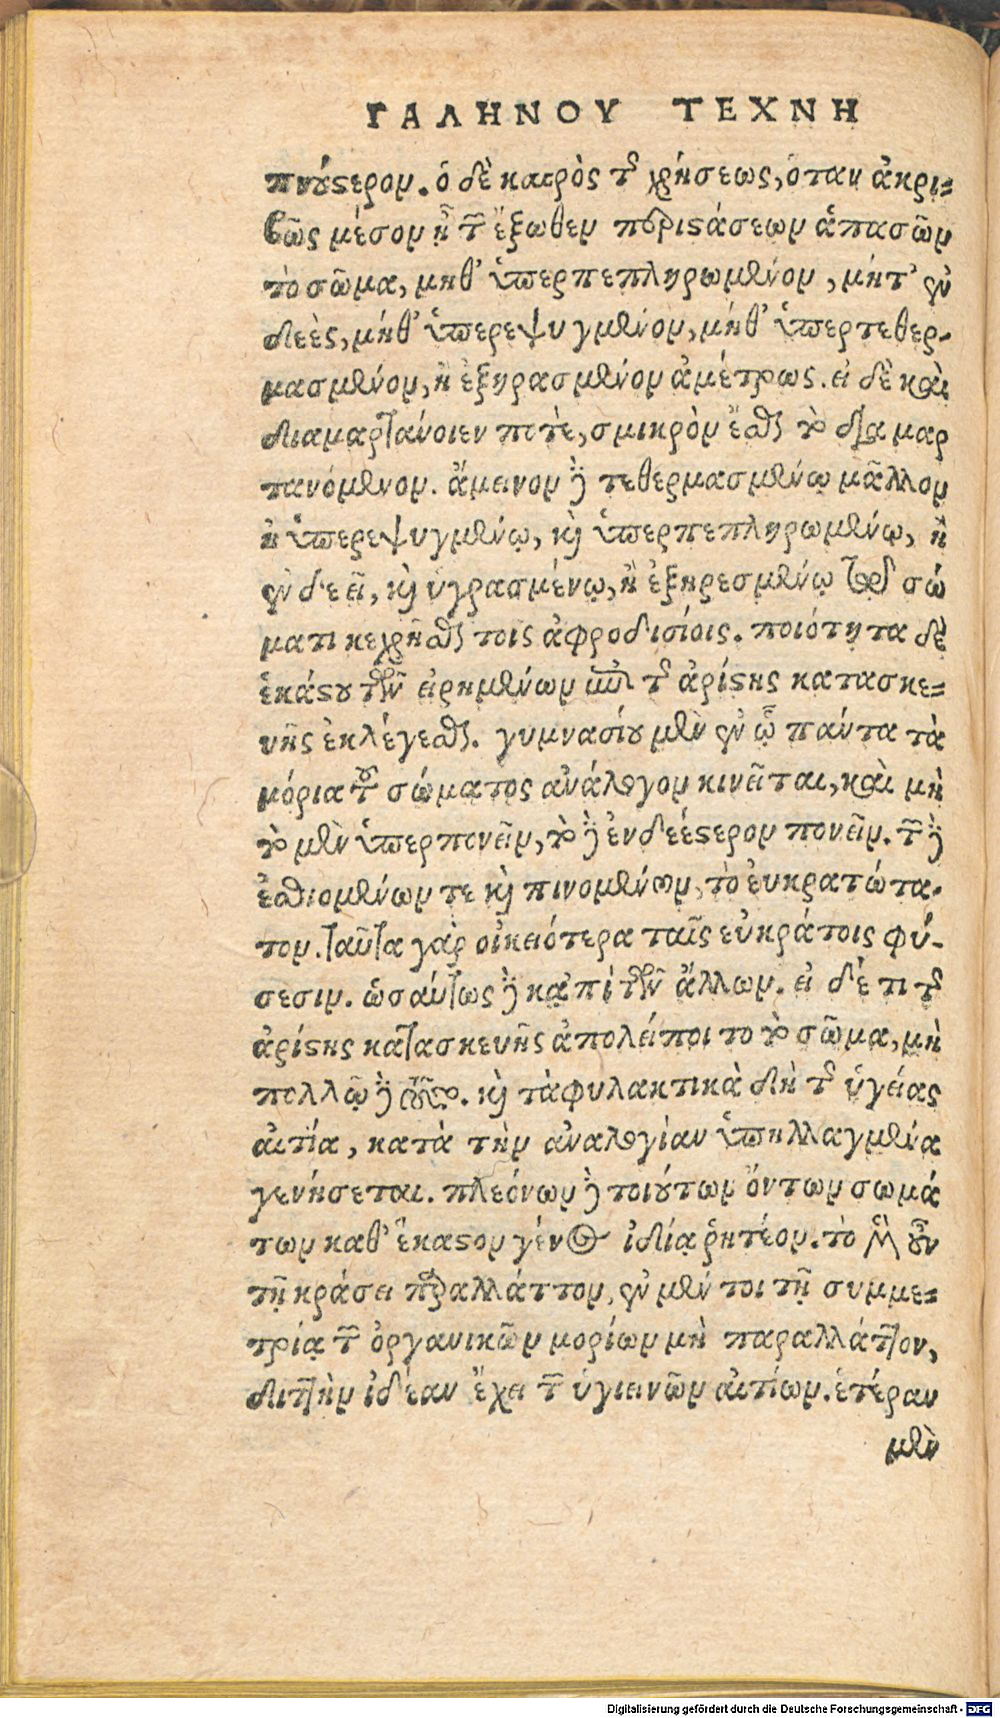 ΓΑΛΗΝΟΥ ΤΕΧΝΗ
πνούστερον. ὁ δὲ καιρὸς τῆς χρήσεως, ὅταν ἀκρι=
βῶς μέσον ᾖ τῶν ἔξωθεν περιστάσεων ἁπασῶν
τὸ σῶμα, μήθ' ὑπερπεπληρωμένον, μήτ' ἐν
δεὲς, μήθ' ὑπερεψυγμένον, μήθ' ὑπερτεθερ-
μασμένον, ἢ ἐξηρασμένον ἀμέτρως. εἰ δὲ καὶ
διαμαρτάνοιεν ποτὲ, σμικρὸν ἔστω τὸ διαμαρ
τανόμενον. ἄμεινον δὲ τεθερμασμένῳ μᾶλλον
ἢ ὑπερεψυγμένῳ, καὶ ὑπερπεπληρωμένῳ, ἢ
ἐνδεεῖ, καὶ ὑγρασμένῳ, ἢ ἐξηρεσμένῳ τῷ σώ
ματι κεχρῆσθαι τοις ἀφροδισίοις. ποιότητα δὲ
ἑκάστου τῶν εἰρημένων ἐπὶ τῆς ἀρίστης κατασκε=
υῆς ἐκλέγεσθαι. γυμνασίου μὲν ἐν ᾧ πάντα τὰ
μόρια τοῦ σώματος ἀνάλογον κινεῖται, καὶ μὴ
τὸ μὲν ὑπερπονεῖν, τὸ δὲ ἐνδεέστερον πονεῖν. τῶν δὲ
ἐσθιομένων τε καὶ πινομένων, τὸ ἐυκρατώτα-
τον. ταῦτα γὰρ οἰκειότερα ταῖς εὐκράτοις φύ-
σεσιν. ὡσαύτως δὲ κᾀπὶ τῶν ἄλλων. εἰ δέ τι τῆς
ἀρίστης κατασκευῆς ἀπολείποι το τὸ σῶμα, μὴ
πολλῷ δὲ τοῦτο. καὶ τὰ φυλακτικὰ δὴ τῆς ὑγείας
αἰτία, κατὰ τὴν ἀναλογίαν ὑπηλλαγμένα
γενήσεται. πλεόνων δὲ τοιούτων ὄντων σωμά
των καθ' ἕκαστον γένος ἰδίᾳ ῥητέον. τὸ μὲν οὖν
τῇ κράσει παραλλάττον, ἐν μέν τοι τῇ συμμε=
τρίᾳ τῶν ὀργανικῶν μορίων μὴ παραλλάττον,
διττὴν ἰδέαν ἔχει τῶν ὑγιεινῶν αἰτίων. ἑτέραν
μὲν
Digitalisierung gefördert durch die Deutsche Forschungsgemeinschaft - DFG